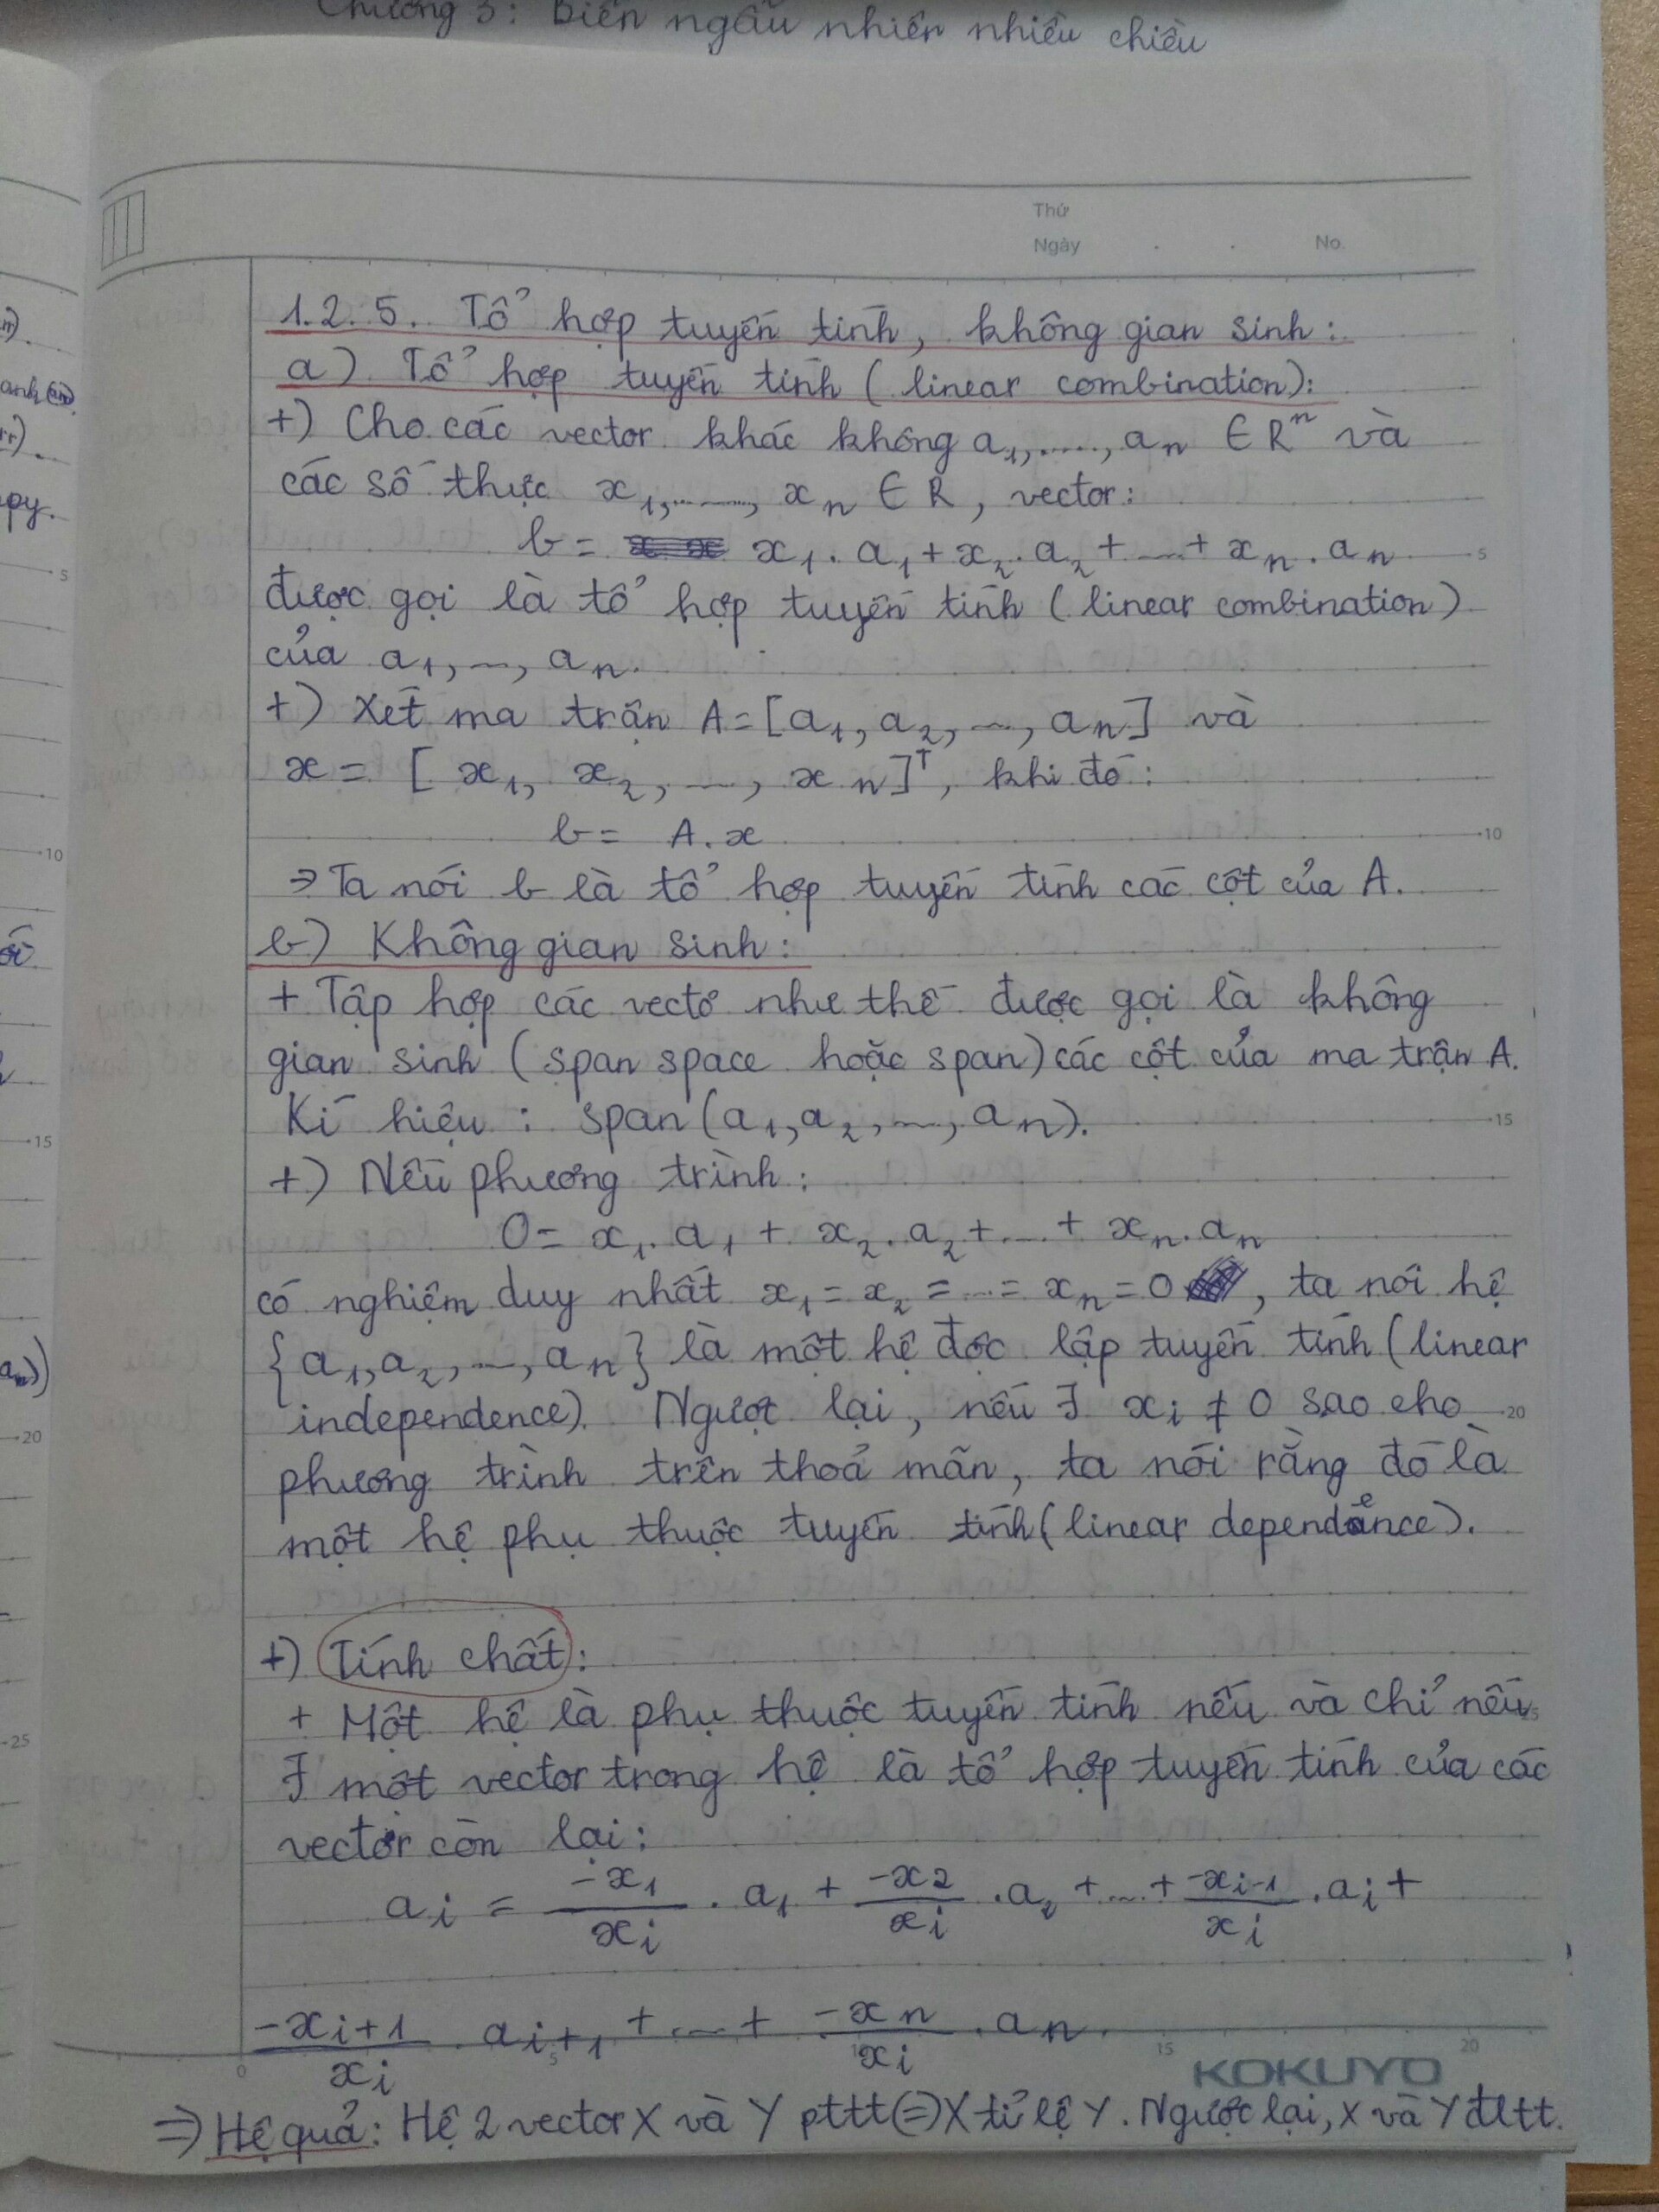 Chương 3: Biến ngẫu nhiên nhiều chiều
Thứ
Ngày . . No.
1.2.5. Tổ hợp tuyến tính, không gian sinh:
a) Tổ hợp tuyến tính (linear combination):
+) Cho các vector khác không a₁,...., aₙ ∈ Rⁿ và
các số thực x₁,....., xₙ ∈ R, vector:
b = x₁. a₁ + x₂. a₂ + ... + xₙ. aₙ
được gọi là tổ hợp tuyến tính (linear combination)
của a₁, ..., aₙ.
+) Xét ma trận A = [a₁, a₂, ..., aₙ] và
x = [x₁, x₂, ..., xₙ]ᵀ, khi đó:
b = A.x
⇒ Ta nói b là tổ hợp tuyến tính các cột của A.
b) Không gian sinh:
+ Tập hợp các vectơ như thế được gọi là không
gian sinh (span space hoặc span) các cột của ma trận A.
Kí hiệu: span(a₁, a₂, ..., aₙ).
+) Nếu phương trình:
0 = x₁. a₁ + x₂. a₂ + ... + xₙ. aₙ
có nghiệm duy nhất x₁ = x₂ = ... = xₙ = 0, ta nói hệ
{a₁, a₂, ..., aₙ} là một hệ độc lập tuyến tính (linear
independence). Ngược lại, nếu ∃ xᵢ ≠ 0 sao cho
phương trình trên thoả mãn, ta nói rằng đó là
một hệ phụ thuộc tuyến tính (linear dependence).
+) Tính chất:
+ Một hệ là phụ thuộc tuyến tính nếu và chỉ nếu
∃ một vector trong hệ là tổ hợp tuyến tính của các
vector còn lại:
aᵢ = -x₁/xᵢ . a₁ + -x₂/xᵢ . a₂ + ... + -xᵢ₋₁/xᵢ . aᵢ +
-xᵢ₊₁/xᵢ . aᵢ₊₁ + ... + -xₙ/xᵢ . aₙ.
KOKUYO
⇒ Hệ quả: Hệ 2 vector X và Y pttt ⇔ X tỉ lệ Y. Ngược lại, X và Y đltt.